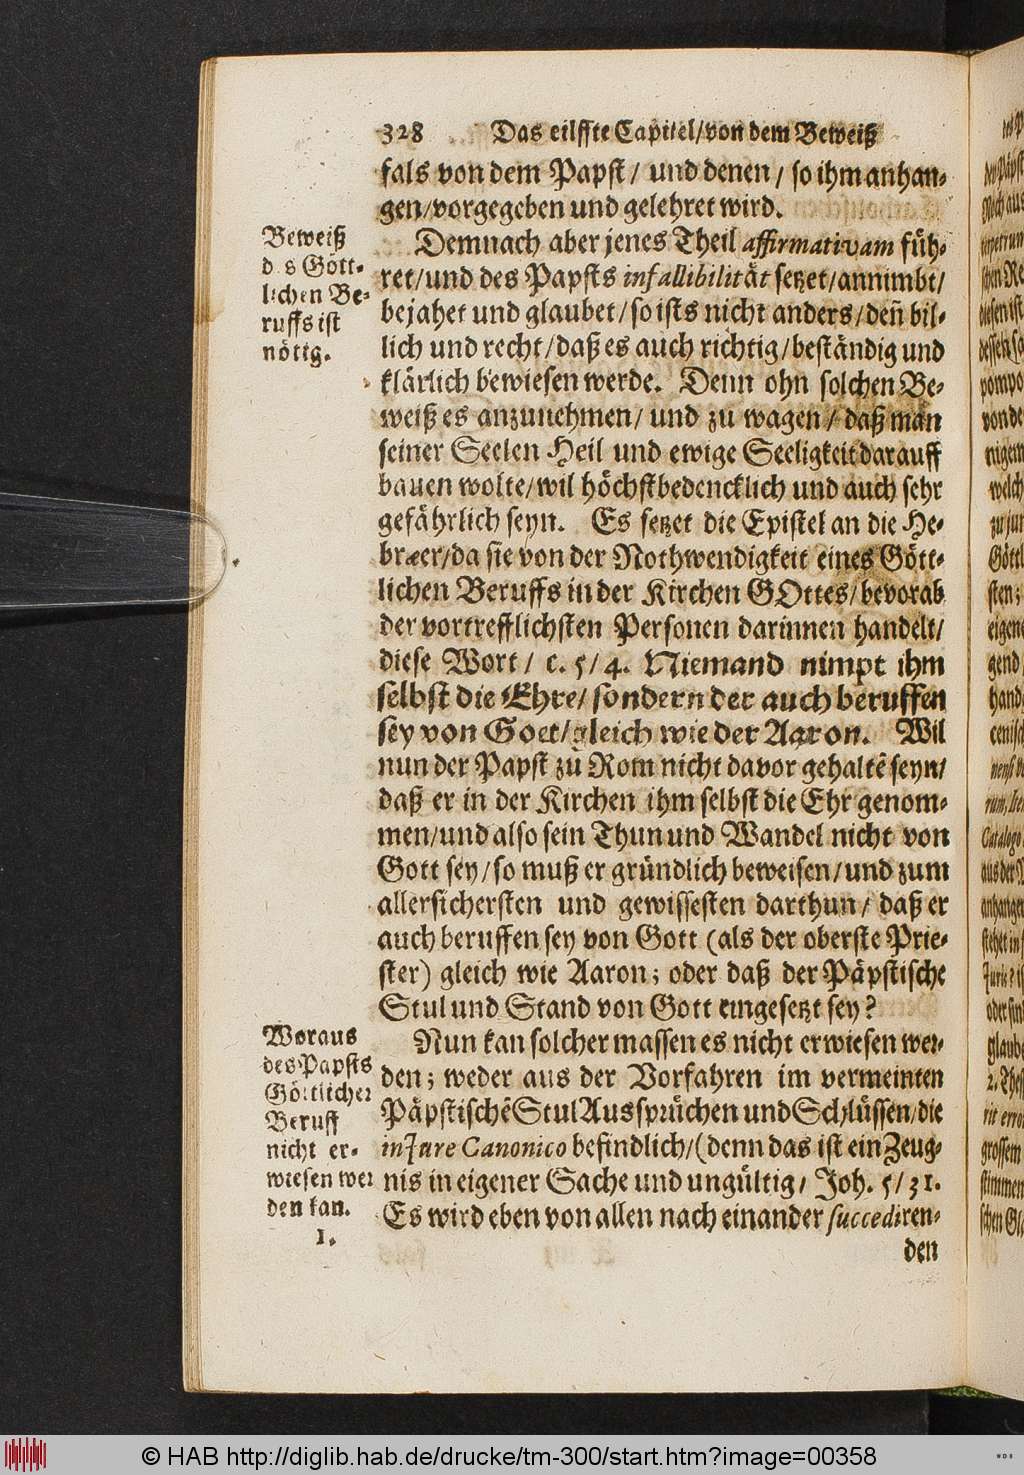 328 Das eilffte Capitel/von dem Beweiß
fals von dem Papst/ und denen/ so ihm anhan-
gen/vorgegeben und gelehret wird.
Beweiß
d s Gött-
lichen Be-
ruffs ist
nötig.
Demnach aber jenes Theil affirmativam füh-
ret/und des Papsts infallibilität setzet/annimbt/
bejahet und glaubet/so ists nicht anders/deñ bil-
lich und recht/daß es auch richtig/beständig und
klärlich bewiesen werde. Denn ohn solchen Be-
weiß es anzunehmen/ und zu wagen/ daß man
seiner Seelen Heil und ewige Seeligkeit darauff
bauen wolte/wil höchstbedencklich und auch sehr
gefährlich seyn. Es setzet die Epistel an die He-
bræer/da sie von der Nothwendigkeit eines Gött-
lichen Beruffs in der Kirchen GOttes/bevorab
der vortrefflichsten Personen darinnen handelt/
diese Wort/ c. 5/4. Niemand nimpt ihm
selbst die Ehre/sondern der auch beruffen
sey von Gott/gleich wie der Aaron. Wil
nun der Papst zu Rom nicht davor gehaltẽ seyn/
daß er in der Kirchen ihm selbst die Ehr genom-
men/und also sein Thun und Wandel nicht von
Gott sey/so muß er gründlich beweisen/und zum
allersichersten und gewissesten darthun/ daß er
auch beruffen sey von Gott (als der oberste Prie-
ster) gleich wie Aaron; oder daß der Päpstische
Stul und Stand von Gott eingesetzt sey?
Woraus
des Papsts
Göttlicher
Beruff
nicht er-
wiesen wer
den kan.
1.
Nun kan solcher massen es nicht erwiesen wer-
den; weder aus der Vorfahren im vermeinten
Päpstischẽ Stul Aussprüchen und Schlüssen/die
in Jure Canonico befindlich/(denn das ist ein Zeug-
nis in eigener Sache und ungültig/ Joh. 5/31.
Es wird eben von allen nach einander succediren-
den
© HAB http://diglib.hab.de/drucke/tm-300/start.htm?image=00358